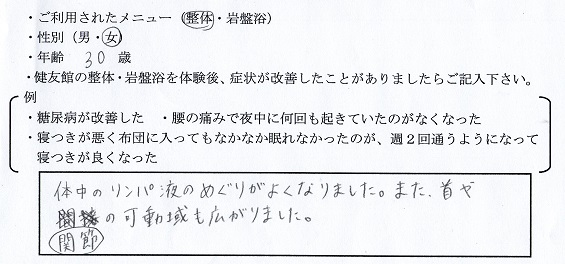 ・ご利用されたメニュー（整体・岩盤浴）
・性別（男・女）
・年齢　30　歳
・健友館の整体・岩盤浴を体験後、症状が改善したことがありましたらご記入下さい。
例
・糖尿病が改善した　・腰の痛みで夜中に何回も起きていたのがなくなった
・寝つきが悪く布団に入ってもなかなか眠れなかったのが、週２回通うようになって
寝つきが良くなった
体中のリンパ液のめぐりがよくなりました。また、首や
の可動域も広がりました。
関節